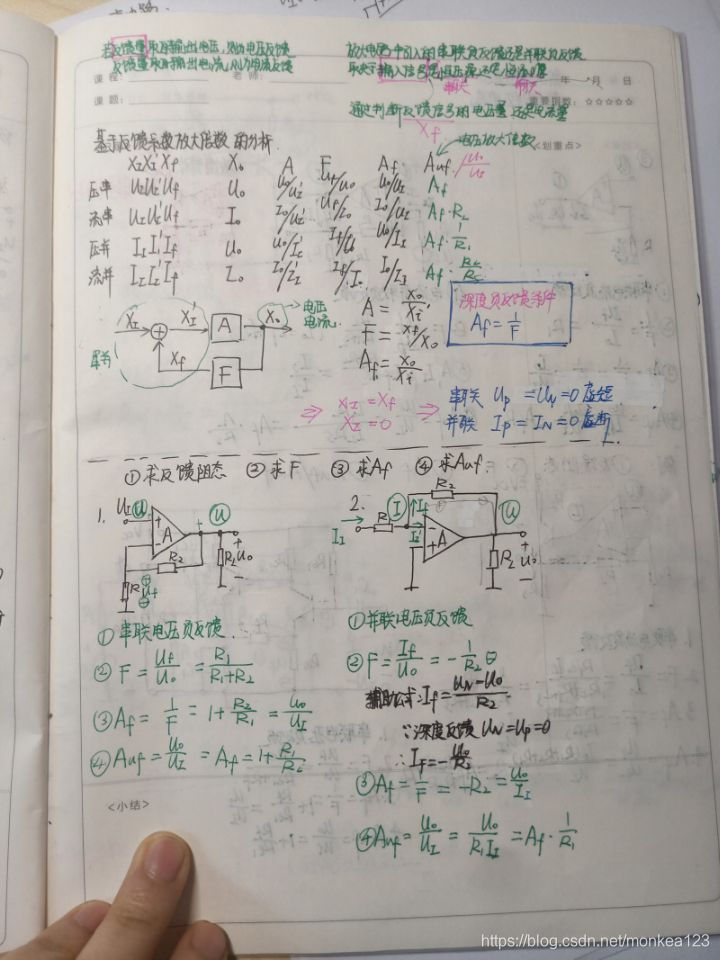 若反馈量取自输出电压,则为电压反馈
反馈量取自输出电流,则为电流反馈
放大电路中引入的串联负反馈还是并联负反馈
取决于输入信号是恒压源还是恒流源
串联 并联
课程: 老师: 年 月 日
课题: 重要指数: ☆☆☆☆☆
通过判断反馈信号的电压量还是电流量
Xf
电压放大倍数
基于反馈系数放大倍数的分析.
<划重点>
XI XI' Xf Xo A F Af Auf Uo/UI
压串 UI UI' Uf Uo Uo/UI' Uf/Uo Uo/UI Af
流串 UI UI' Uf Io Io/UI' Uf/Io Io/UI Af·RL
压并 II II' If Uo Uo/II' If/Uo Uo/II Af·1/R1
流并 II II' If Io Io/II' If/Io Io/II
XI XI' A Xo 电压
电流
Xf F
A = Xo/Xi'
F = Xf/Xo
Af = Xo/Xi
深度负反馈条件
Af = 1/F
⇒ XI = Xf
XI' = 0
⇒ 串联 UP = UN = 0 虚短
并联 IP = IN = 0 虚断
①求反馈阻态 ②求F ③求Af ④求Auf
1. UI U + - A R2 U RL Uo + - R1 Uf
2. II R I If I' R2 - + A U RL Uo + -
①串联电压负反馈
② F = Uf/Uo = R1/(R1+R2)
③ Af = 1/F = 1+R2/R1 = Uo/UI
④ Auf = Uo/UI = Af = 1+
①并联电压负反馈
② F = If/Uo = -1/R2
辅助公式: If = (UN-Uo)/R2
∵深度反馈 UN=UP=0
∴ IF = -Uo/R2
③ Af = 1/F = -R2 = Uo/II
④ Auf = Uo/UI = Uo/(R1 II) = Af·1/R1
<小结>
https://blog.csdn.net/monkea123